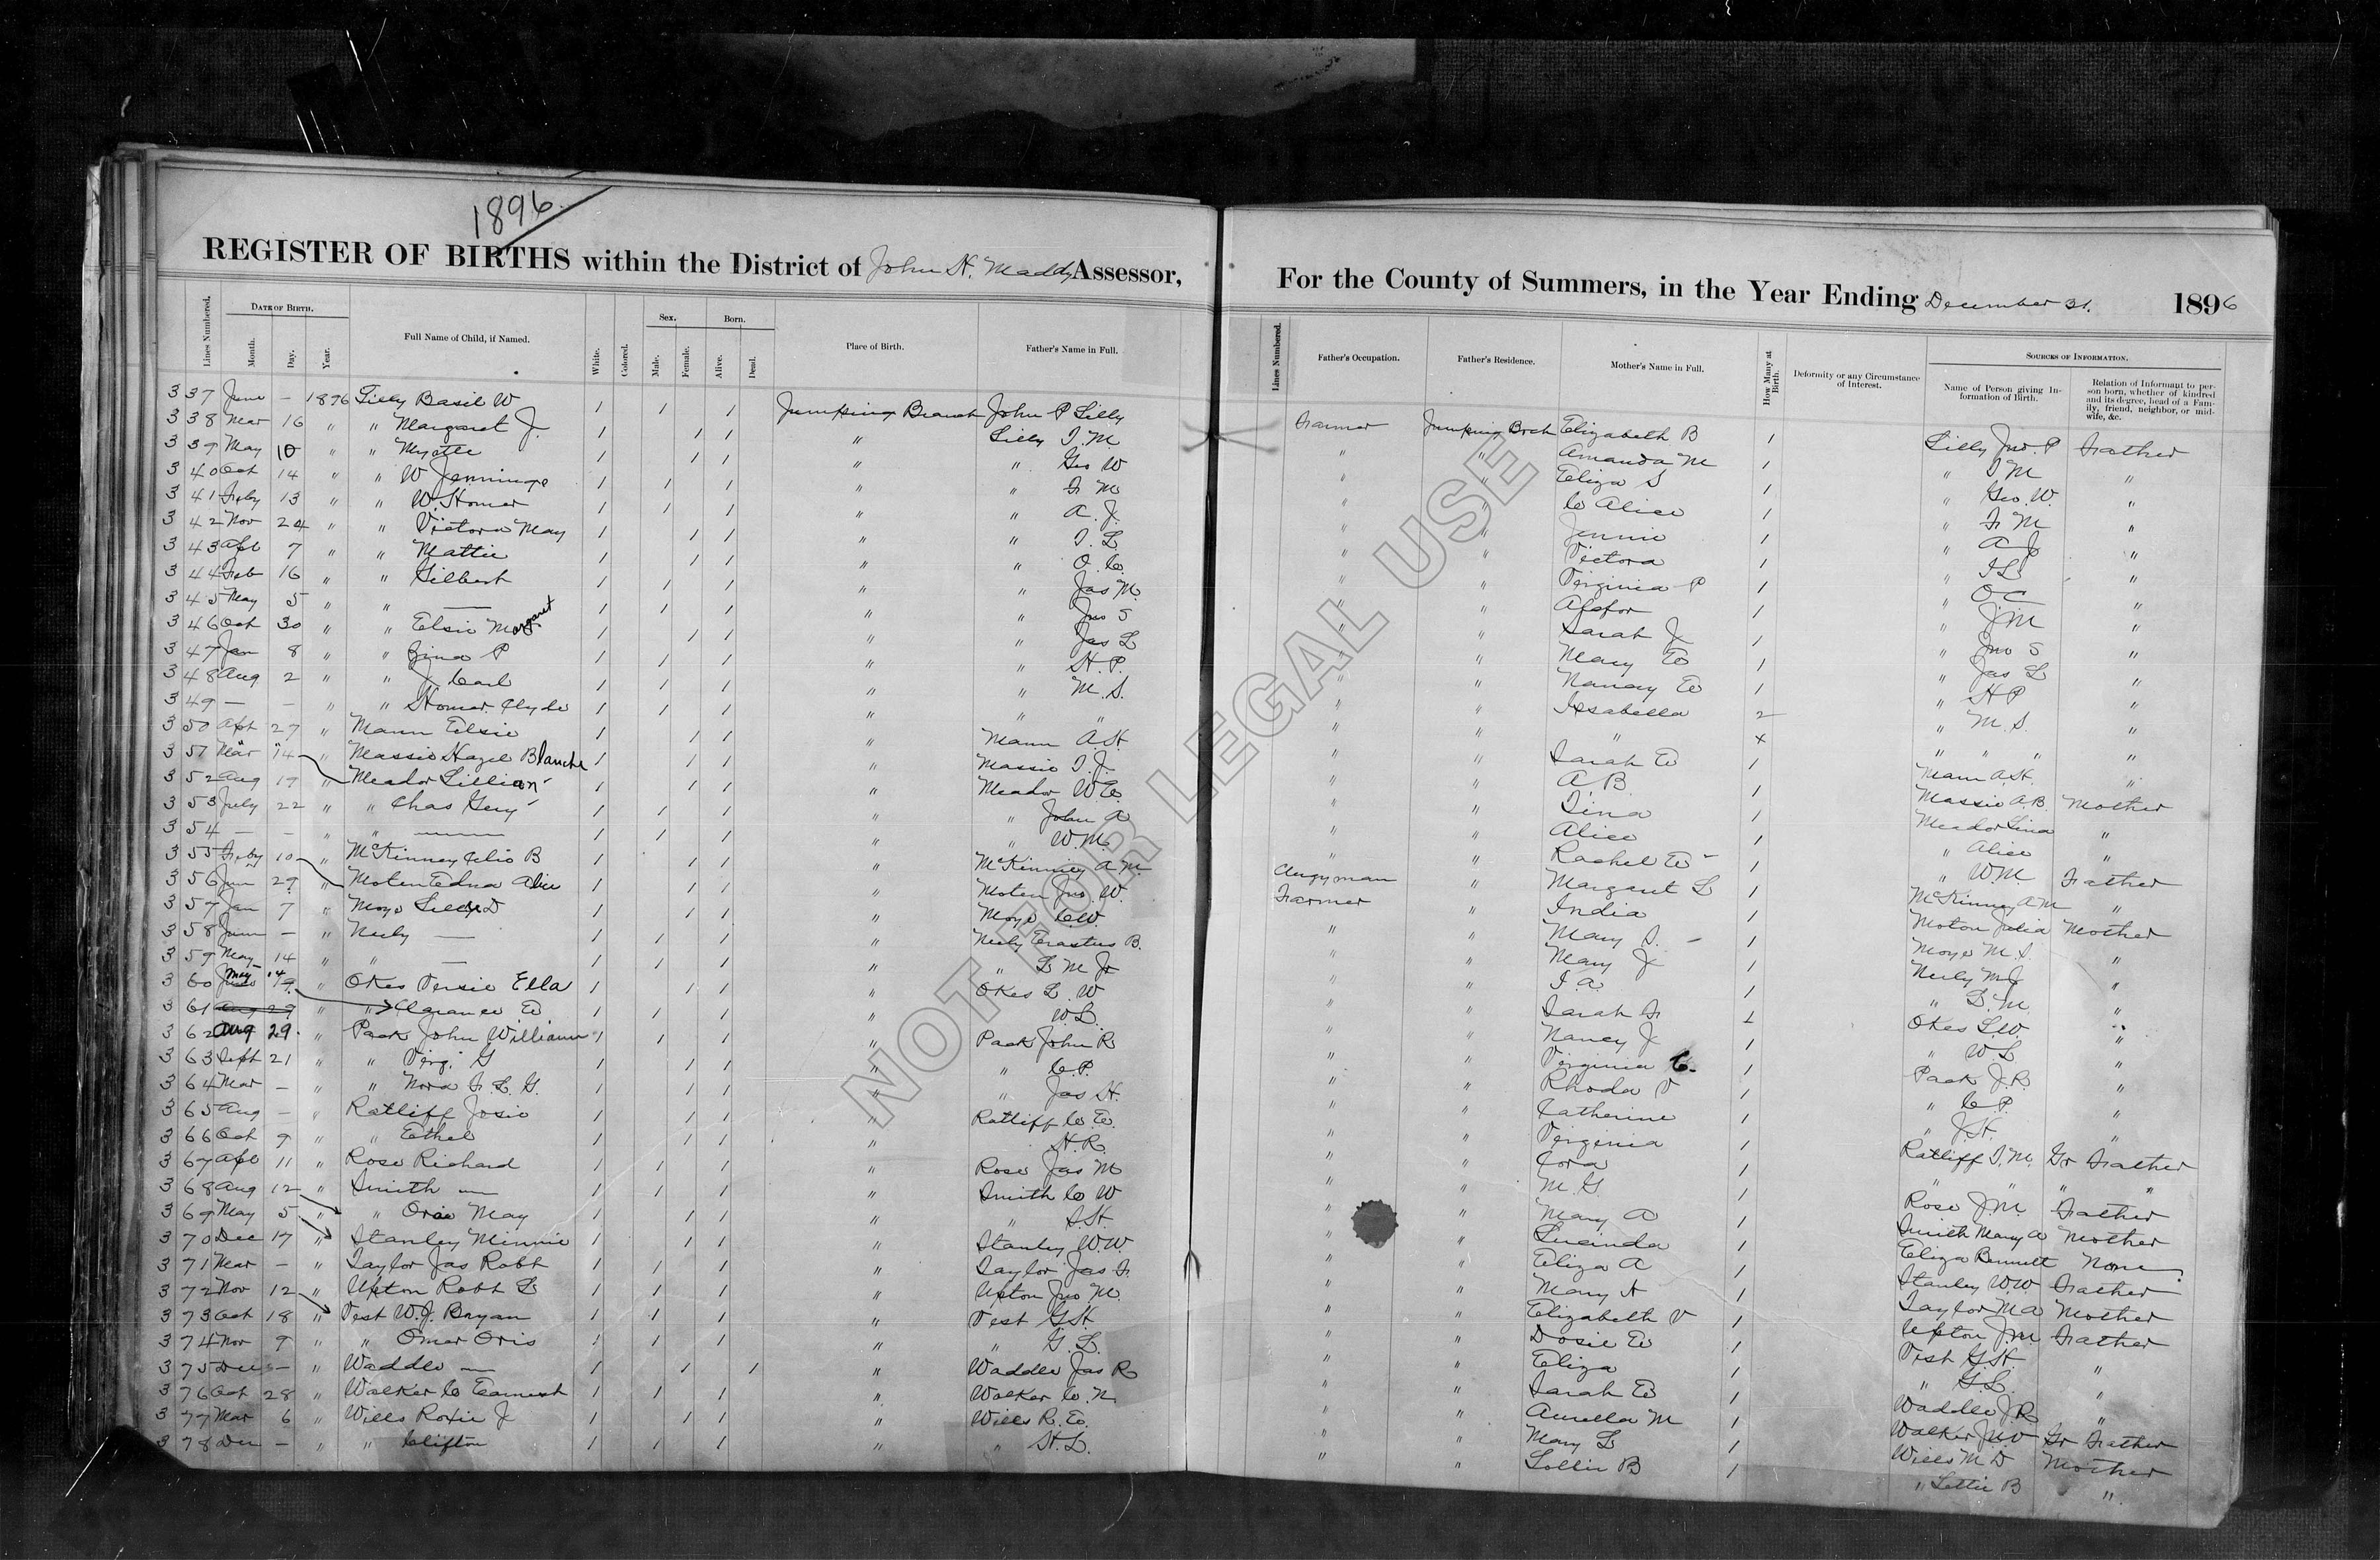 1896
REGISTER OF BIRTHS within the District of John H. Maddy Assessor,
Lines Numbered. DATE OF BIRTH. Month. Day. Year. Full Name of Child, if Named. White. Colored. Sex. Male. Female. Born. Alive. Dead. Place of Birth. Father's Name in Full.
337 June – 1896 Lilly Basil W 1 1 1 Jumping Branch John P Lilly
338 Mar 16 " " Margaret J. 1 1 1 " Lilly I. M
339 May 10 " " Myrtle 1 1 1 " " Geo W
340 Oct 14 " " W Jennings 1 1 1 " " F M
341 Feby 13 " " W. Homer 1 1 1 " " A. J.
342 Nov 24 " " Victora May 1 1 1 " " I. L
343 Apl 7 " " Mattie 1 1 1 " " O. C.
344 Feb 16 " " Gilbert 1 1 1 " " Jas M.
345 May 5 " " — 1 1 1 " " Jno S
346 Oct 30 " " Elsie Margaret 1 1 1 " " Jas L
347 Jan 8 " " Zina P 1 1 1 " " H. P.
348 Aug 2 " " J Carl 1 1 1 " " M. S.
349 — – " " Homer Clyde 1 1 1 " " "
350 Apl 27 " Mann Elsie 1 1 1 " Mann A.H.
351 Mar 14 " Massie Hazel Blanche 1 1 1 " Massie I. J.
352 Aug 19 " Meador Lillian 1 1 1 " Meador W E
353 July 22 " " Chas Guy 1 1 1 " " John A
354 — – " " — 1 1 1 " " W. M.
355 Feby 10 " McKinney Clio B 1 1 1 " McKinney A M.
356 Jun 29 " Moten Edna Alice 1 1 1 " Moten Jno. W.
357 Jan 7 " Moye Lilly D 1 1 1 " Moye C W.
358 June – " Neely — 1 1 1 " Neely Erastus B.
359 May 14 " " — 1 1 1 " " L M Jr
360 May 14 " Okes Versie Ella 1 1 1 " Okes L. W
361 Aug 29 " " Clarance E 1 1 1 " W L.
362 Aug 29. " Pack John William 1 1 1 " Pack John R
363 Sept 21 " " Virgi G 1 1 1 " " C. P.
364 Mar – " " Nora F. L. G. 1 1 1 " " Jas H.
365 Aug – " Ratliff Josie 1 1 1 " Ratliff C. E.
366 Oct 9 " " Ethel 1 1 1 " H. R.
367 Apl 11 " Rose Richard 1 1 1 " Rose Jas M
368 Aug 12 " Smith — 1 1 1 " Smith C W
369 May 5 " " Oras May 1 1 1 " " S. H.
370 Dec 17 " Stanley Minnie 1 1 1 " Stanley W. W.
371 Mar – " Taylor Jas Robt 1 1 1 " Taylor Jas F.
372 Nov 12 " Upton Robt L 1 1 1 " Upton Jno M.
373 Oct 18 " Vest W. J. Bryan 1 1 1 " Vest G. H.
374 Nov 9 " " Omer Oris 1 1 1 " " G. L.
375 Dec – " Waddle — 1 1 1 " Waddle Jas R
376 Oct 28 " Walker C Earnest 1 1 1 " Walker C. N.
377 Mar 6 " Wills Roxie J 1 1 1 " Wills R. E.
378 Dec – " " Clifton 1 1 1 " " H. L.
For the County of Summers, in the Year Ending December 31. 1896
Lines Numbered. Father's Occupation. Father's Residence. Mother's Name in Full. How Many at Birth. Deformity or any Circumstance of Interest. SOURCES OF INFORMATION. Name of Person giving Information of Birth. Relation of Informant to person born, whether of kindred and its degree, head of a Family, friend, neighbor, or midwife, &c.
Farmer Jumping Brch Elizabeth B 1 Lilly Jno. P Father
" " Amanda M 1 " I M "
" " Eliza S 1 " Geo. W. "
" " C Alice 1 " F M "
" " Jennie 1 " A J "
" " Victora 1 " I L "
" " Virginia P 1 " O C "
" " 1 " J M "
" " Sarah J 1 " Jno S "
" " Mary E 1 " Jas L "
" " Nancy E 1 " H P "
" " Issabella 2 " M. S. "
" " " x " " " "
" " Sarah E 1 Mann A.H. "
" " A B. 1 Massie A B. Mother
" " Tina 1 Meador Tina "
" " Alice 1 " Alice "
" " Rachel E 1 " W.M. Father
Clergyman " Margaret L 1 McKinney A M "
Farmer " India 1 Moton Julia Mother
" " Mary S. 1 Moye M. S. "
" " Mary J 1 Neely M J "
" " I. A. 1 " L. M "
" " Sarah F. 1 Okes L.W. "
" " Nancy J 1 " W L "
" " Virginia C. 1 Pack J. R. "
" " Rhoda V 1 " C P. "
" " Catherine 1 " J. H. "
" " Virginia 1 Ratliff I. M. Gr Father
" " Cora 1 " " " "
" " M. G. 1 Rose J. M. Father
" " Mary A 1 Smith Mary A Mother
" " Lucinda 1 Eliza Bennett None
" " Eliza A 1 Stanley W.W Father
" " Mary A 1 Taylor M A Mother
" " Elizabeth V 1 Upton J. M Father
" " Dosie E 1 Vest G. H. "
" " Eliza 1 " G L. "
" " Sarah E 1 Waddle J R. "
" " Aurella M 1 Walker J W Gr Father
" " Mary L 1 Wills M D Mother
" " Lottie B 1 " Lettie B "
NOT FOR LEGAL USE